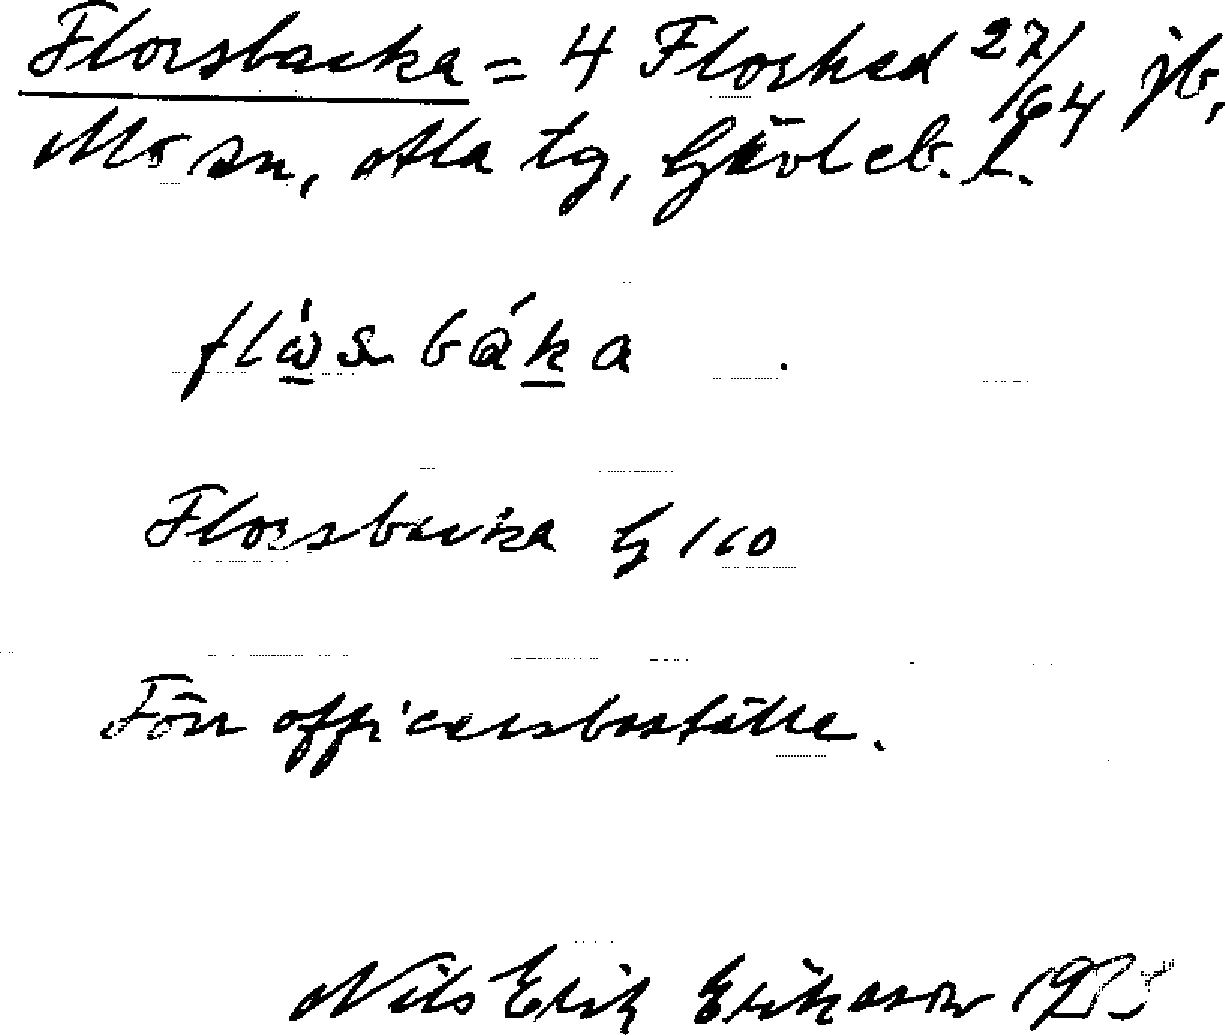 Florsbacka = 4 Florhed 27/64 jb,
Mo sn, Ala tg, Gävleb. l.
flὼs báka
Florsbacka G 110
Förr officersboställe.
Nils Erik Eriksson